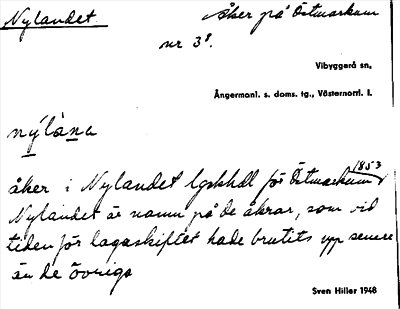 Nylandet
Åker på Östmarkum
nr 3⁸.
Vibyggerå sn,
Ångermanl. s. doms. tg., Västernorrl. l.
nýlàna
åker i Nylandet lgskhdl för Östmarkum 1853
Nylandet är namn på de åkrar, som vid
tiden för lagaskiftet hade brutits upp senare
än de övriga
Sven Hiller 1948